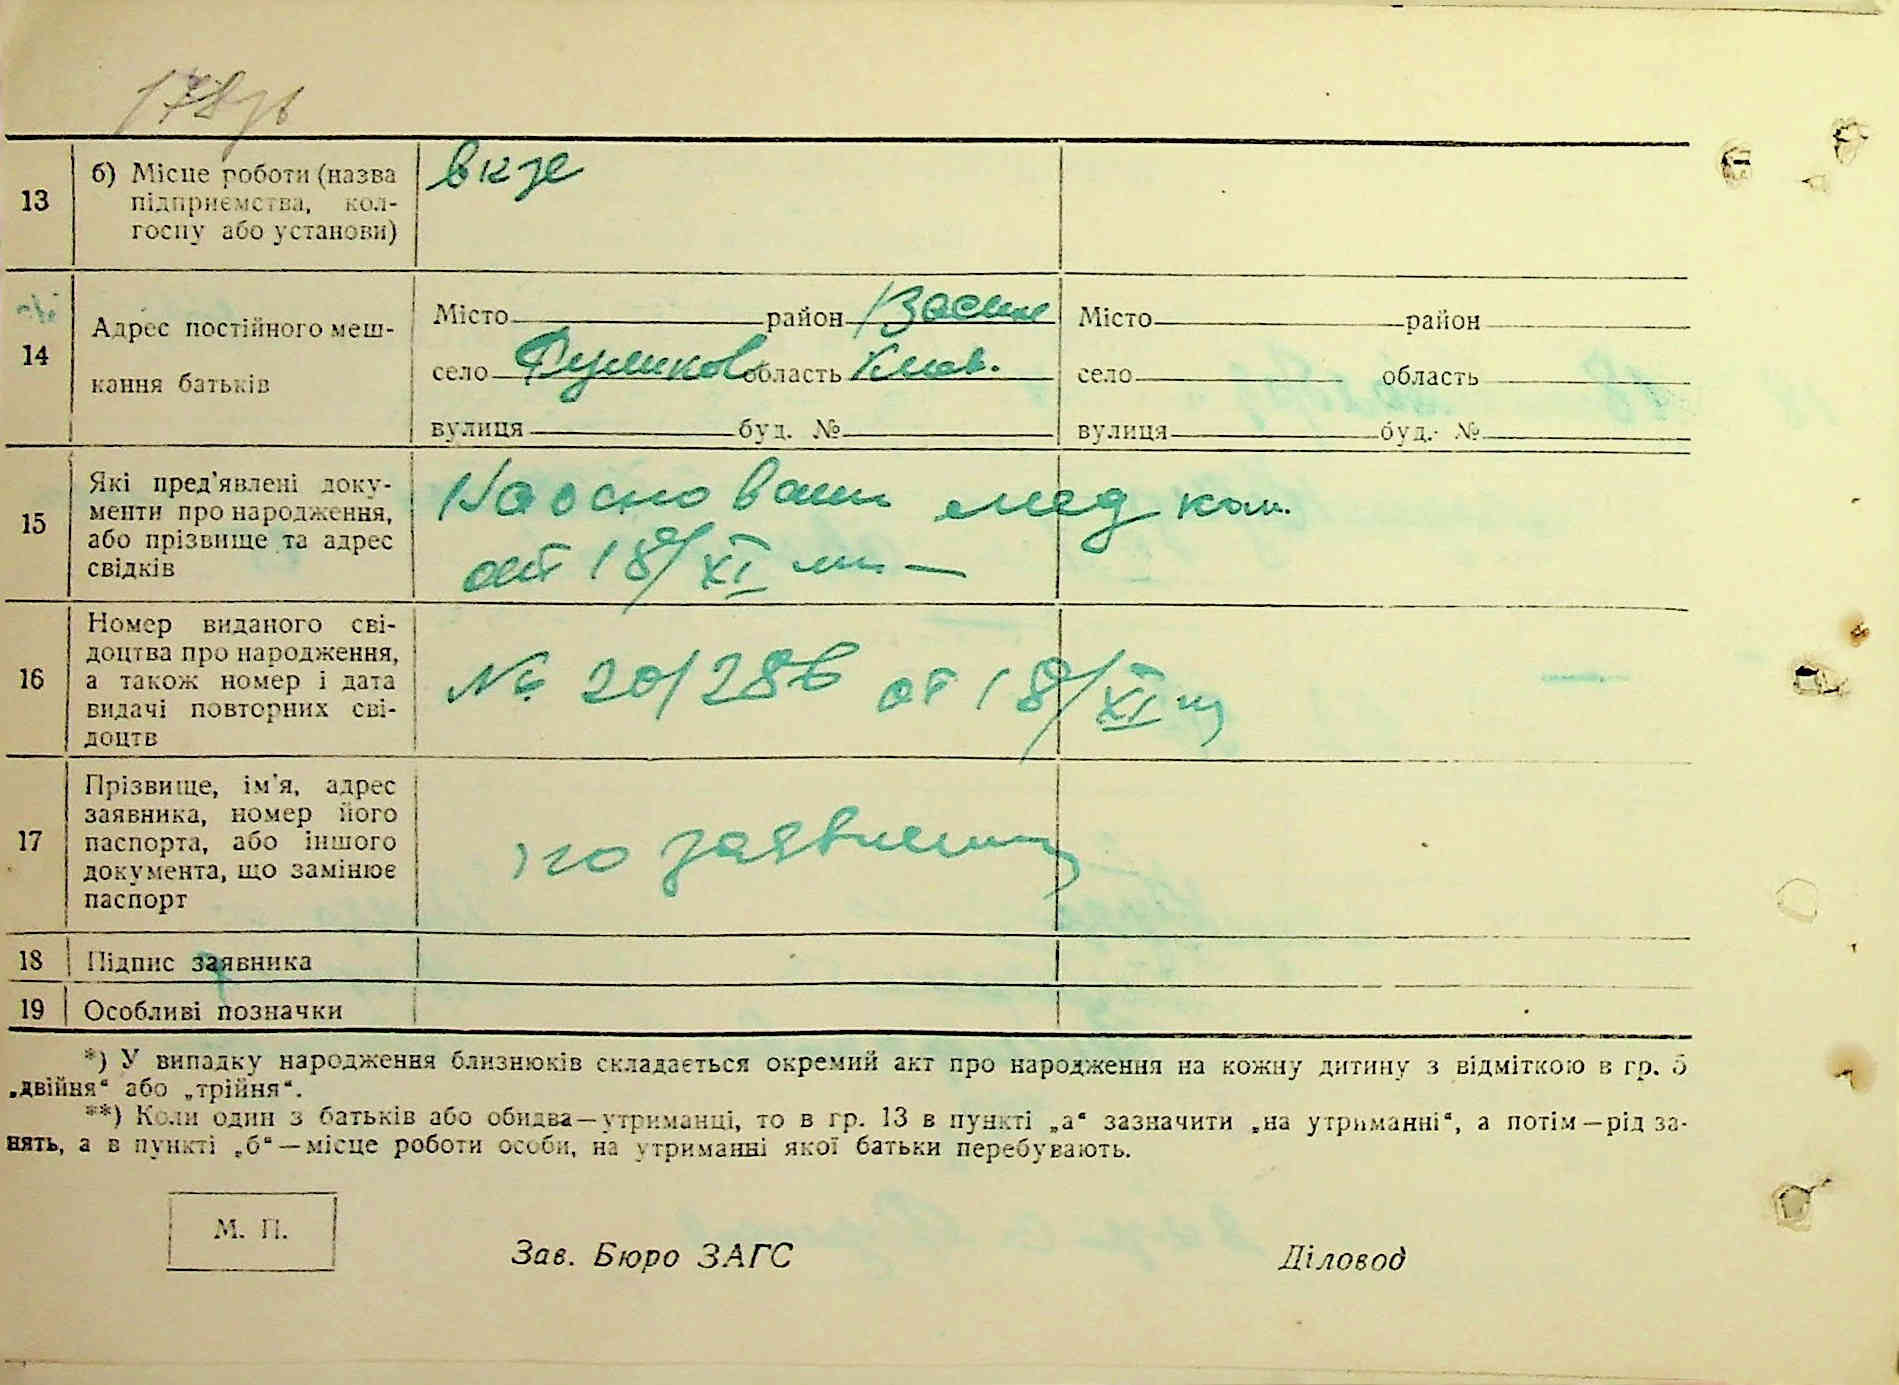 178
13
б) Місце роботи (назва
підприємства, кол-
госпу або установи)
14
Адрес постійного меш-
кання батьків
Місто район Васильк
село область Киев.
вулиця буд. №
Місто район
село область
вулиця буд. №
15
Які пред'явлені доку-
менти про народження,
або прізвище та адрес
свідків
На основании мед ком.
от 18/XI
16
Номер виданого сві-
доцтва про народження,
а також номер і дата
видачі повторних сві-
доцтв
№ 20/288 от 18/XI
17
Прізвище, ім'я, адрес
заявника, номер його
паспорта, або іншого
документа, що замінює
паспорт
по заявлению
18 Підпис заявника
19 Особливі позначки
*) У випадку народження близнюків складається окремий акт про народження на кожну дитину з відміткою в гр. 5
„двійня“ або „трійня“.
**) Коли один з батьків або обидва—утриманці, то в гр. 13 в пункті „а“ зазначити „на утриманні“, а потім—рід за-
нять, а в пункті „б“—місце роботи особи, на утриманні якої батьки перебувають.
М. П.
Зав. Бюро ЗАГС Діловод